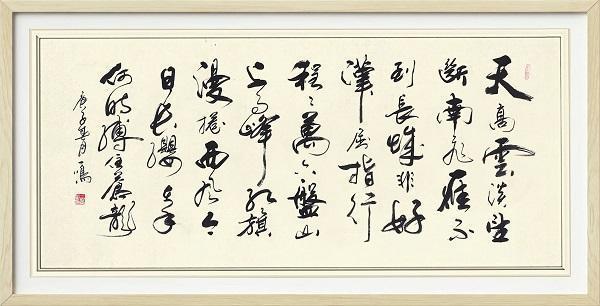 天高雲淡望
斷南飛雁不
到長城非好
漢屈指行
程二萬六盤山
上高峰紅旗
漫捲西風今
日長纓在手
何時縛住蒼龍
庚子 月一鳴